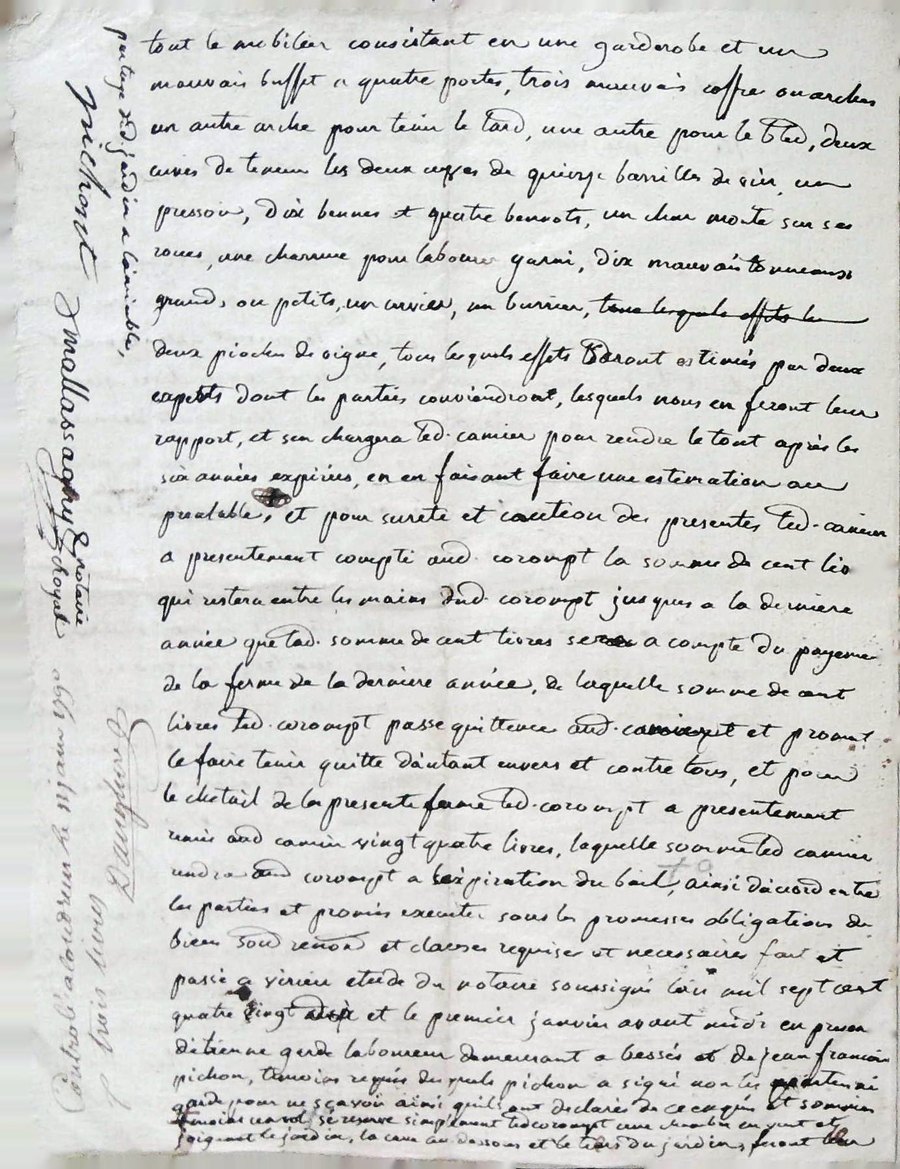 tout le mobilier consistant en une garderobe et un
mauvais buffet a quatre portes, trois mauvais coffre ou arches
un autre arche pour tenir le lard, une autre pour le bled, deux
cuves de teneur les deux de quinze barrilles de vin, un
pressoir, dix bennes et quatre bennots, un char monté sur ses
roues, une charrue pour labourer garni, dix mauvais tonneaux
grands ou petits, un cuvier, un burrier, tous lesquels effets
deux pioches de vigne, tous lesquels effets seront estimés par deux
experts dont les parties conviendront, lesquels nous en feront leur
rapport, et sen chargera led. camier pour rendre le tout après les
six années expirées, en en faisant faire une estimation au
prealable, et pour sureté et caution des presentes led. camier
a presentement compté aud. corompt la somme de cent liv
qui restera entre les mains dud. corompt jusques a la derniere
année que lad. somme de cent livres sera a compte du payeme
de la ferme de la derniere année, de laquelle somme de cent
livres led. corompt passe quittence aud. et promet
le faire tenir quitte dautant envers et contre tous, et pour
le chetail de la presente ferme led. corompt a presentement
remis aud camier vingt quatre livres, laquelle somme led camier
rendra aud corompt a lexpiration du bail, ainsi daccord entre
les parties et promis executer sous les promesses obligations de
biens et clauses requises et necessaires fait et
passé a virieu etude du notaire soussigné lan mil sept cent
quatre vingt et le premier janvier avant midi en presen
detienne garde laboureur demeurant a bessés et de jean francois
pichon, temoins requis desquels pichon a signé non les
garde pour ne sçavoir ainsi quils ont declarés de ce enquis et sommés
se reserve simplement led corompt une chambre
joignant le jardin, la cave au dessous et le tiers du jardin, feront leur
partage dud jardin a lamiable,
pichont Mallassagny notaire
royal
Controlé a le janv 1788
trois livres